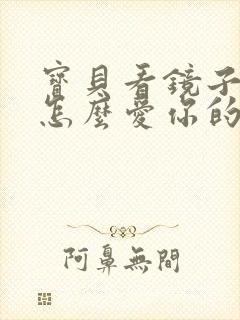 寶貝看鏡子
怎麼愛你的
阿鼻無間